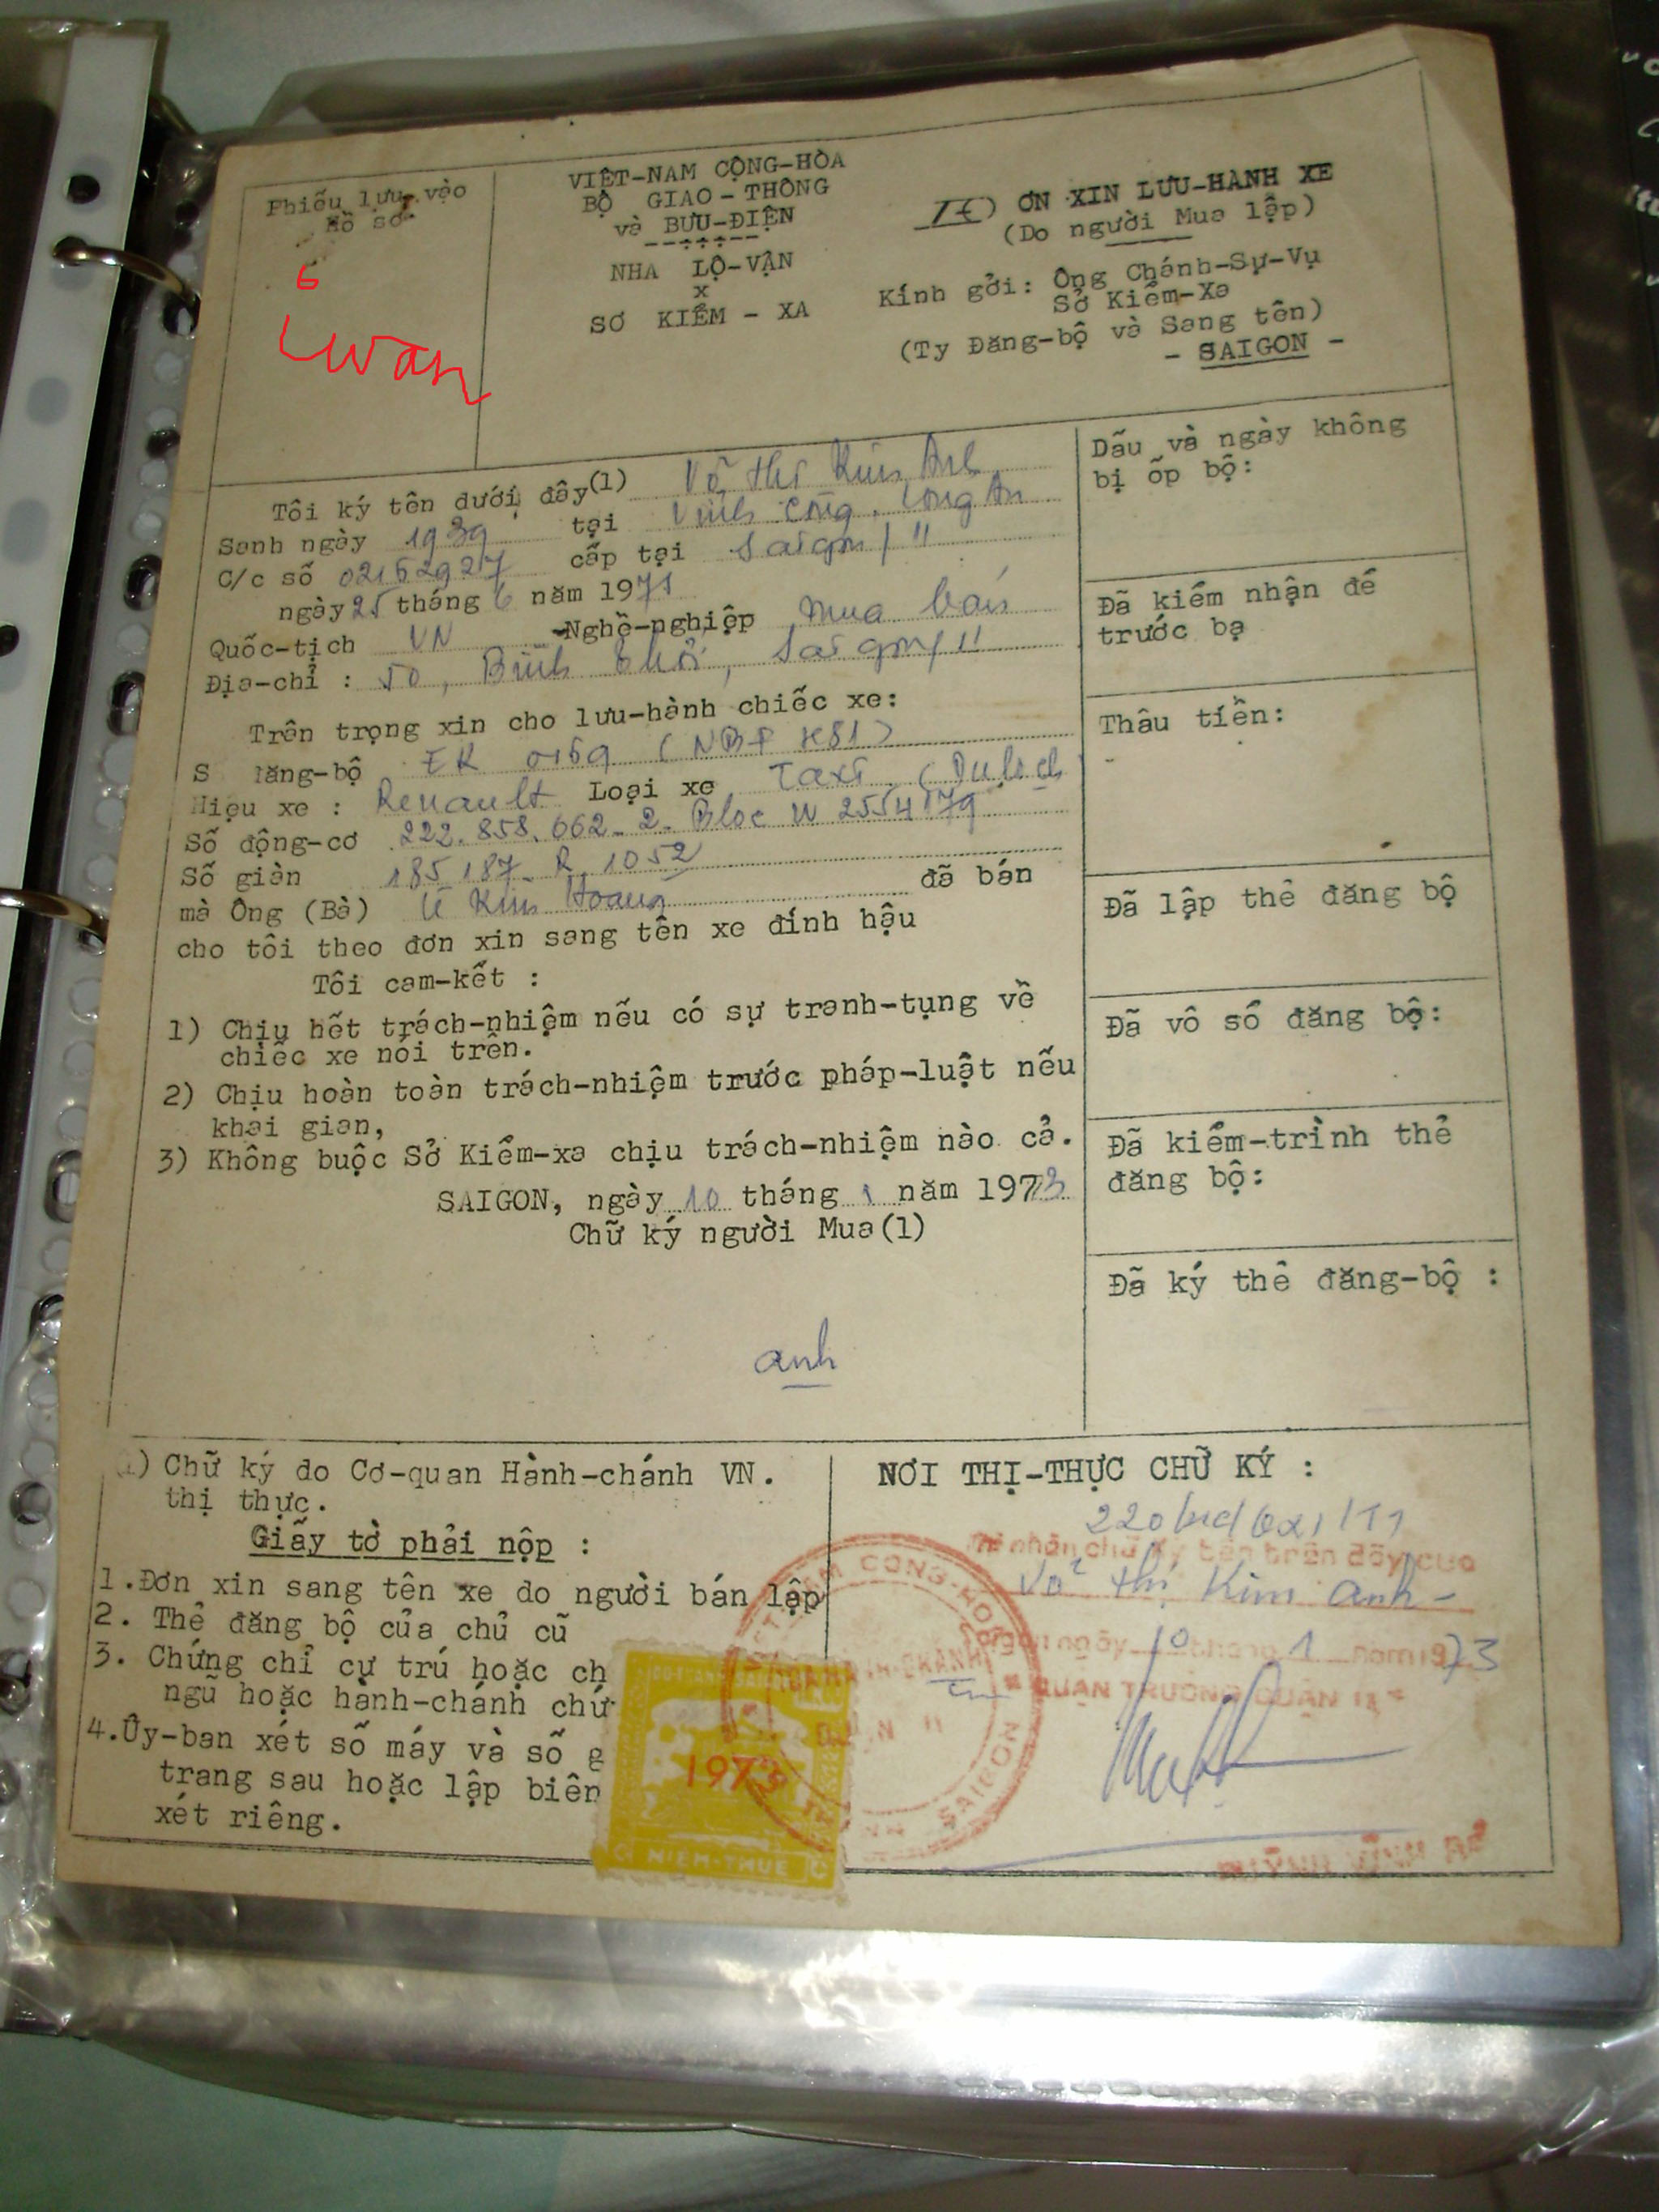 Phiếu lưu vào
Hồ sơ
6
Lwan
VIỆT-NAM CỘNG-HÒA
BỘ GIAO-THÔNG
và BƯU-ĐIỆN
NHA LỘ-VẬN
x
SỞ KIỂM-XA
II) ƠN XIN LƯU-HÀNH XE
(Do người Mua lập)
Kính gởi: Ông Chánh-Sự-Vụ
Sở Kiểm-Xa
(Ty Đăng-bộ và Sang tên)
- SAIGON -
Tôi ký tên dưới đây(1) Võ thị Kim Anh
Sanh ngày 1939 tại Vĩnh Công, Long An
C/c số 02162927 cấp tại Saigon/11
ngày 25 tháng 6 năm 1971
Quốc-tịch VN Nghề-nghiệp mua bán
Địa-chỉ : 50, Bình Thới, Saigon/11
Trân trọng xin cho lưu-hành chiếc xe:
S đăng-bộ EK 0169 (NBP K81)
Hiệu xe : Renault Loại xe Taxi (Du lịch
Số động-cơ 222.858.662-2. Bloc N 2554179
Số giàn 185187 R. 1052
mà Ông (Bà) Kim Hoang đã bán
cho tôi theo đơn xin sang tên xe đính hậu
Tôi cam-kết :
1) Chịu hết trách-nhiệm nếu có sự tranh-tụng về
chiếc xe nói trên.
2) Chịu hoàn toàn trách-nhiệm trước pháp-luật nếu
khai gian,
3) Không buộc Sở Kiểm-xa chịu trách-nhiệm nào cả.
SAIGON, ngày 10 tháng 1 năm 1973
Chữ ký người Mua(1)
anh
Dấu và ngày không
bị ốp bộ:
Đã kiểm nhận để
trước bạ
Thâu tiền:
Đã lập thẻ đăng bộ
Đã vô sổ đăng bộ:
Đã kiểm-trình thẻ
đăng bộ:
Đã ký thẻ đăng-bộ :
(1) Chữ ký do Cơ-quan Hành-chánh VN.
thị thực.
Giấy tờ phải nộp :
1.Đơn xin sang tên xe do người bán lập
2. Thẻ đăng bộ của chủ cũ
3. Chứng chỉ cư trú hoặc ch
ngũ hoặc hành-chánh chứ
4.Ủy-ban xét số máy và số g
trang sau hoặc lập biên
xét riêng.
1973
NIÊM-THUẾ
NƠI THỊ-THỰC CHỮ KÝ :
nhận chữ ký tên trên đây của
Võ thị Kim Anh-
Saigon ngày 10 tháng 1 năm 1973
QUẬN TRƯỞNG QUẬN 11
HUỲNH VĨNH